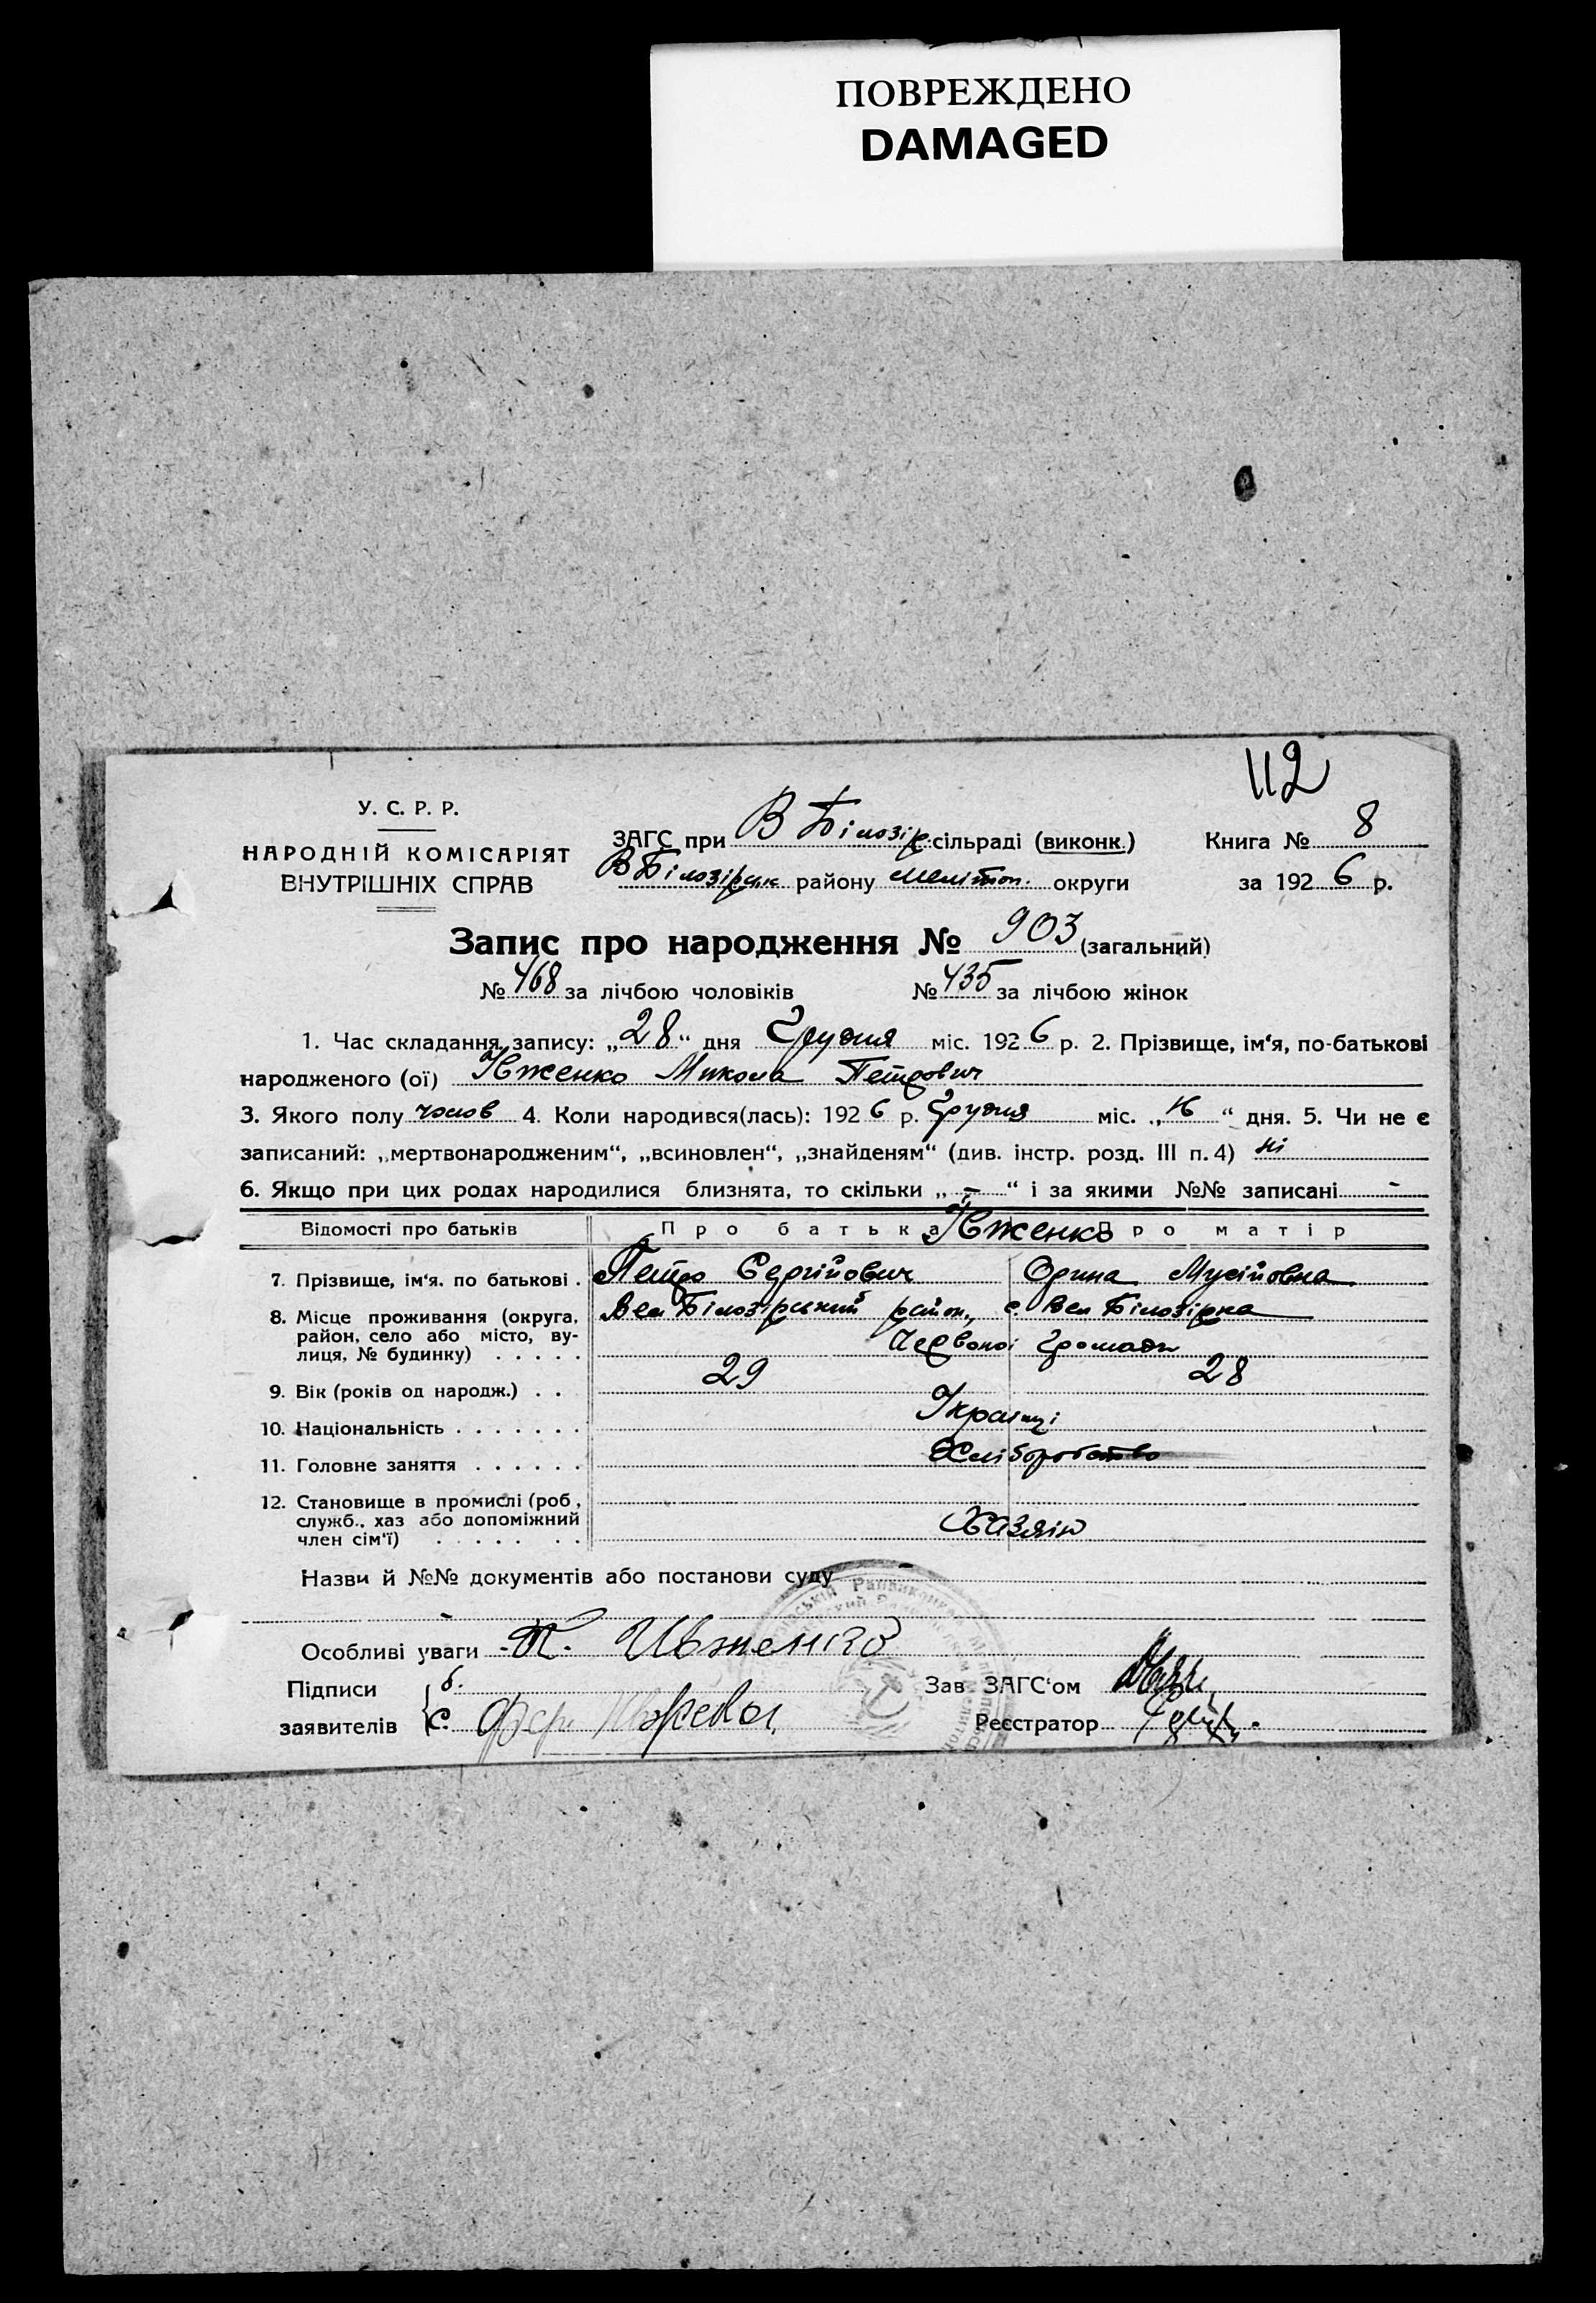 ПОВРЕЖДЕНО
DAMAGED
112
У. С. Р. Р.
НАРОДНІЙ КОМІСАРІЯТ
ВНУТРІШНІХ СПРАВ
ЗАГС при В Білозір. сільраді (виконк.)
В Білозірськ району Меліт оп. округи
Книга № 8
за 1926 р.
Запис про народження № 903 (загальний)
№ 468 за лічбою чоловіків № 435 за лічбою жінок
1. Час складання запису: „28“ дня Грудня міс. 1926 р. 2. Прізвище, ім‘я, по-батькові
народженого (ої) Івженко Микола Петрович
3. Якого полу чолов 4. Коли народився(лась): 1926 р. Грудня міс. „16“ дня. 5. Чи не є
записаний: „мертвонародженим“, „всиновлен“, „знайденям“ (див. інстр. розд. III п. 4) ні
6. Якщо при цих родах народилися близнята, то скільки „-“ і за якими №№ записані -
Відомості про батьків Про батька Івженко Про матір
7. Прізвище, ім‘я. по батькові . Петро Сергійович Орина Мусійовна
8. Місце проживання (округа, Вел Білозірський район, с. Вел Білозірка
район, село або місто, ву-
лиця, № будинку) . . . . . Червоної Громади
9. Вік (років од народж.) . . 29 28
10. Національність . . . . . . . Українці
11. Головне заняття . . . . . . Хліборобство
12. Становище в промислі (роб,
служб., хаз або допоміжний
член сім‘ї) . . . . . . . Хазяїн
Назви й №№ документів або постанови суду -
Особливі уваги П. Ивженко
Підписи
заявителів
б.
с.
Зав. ЗАГС‘ом
Реєстратор